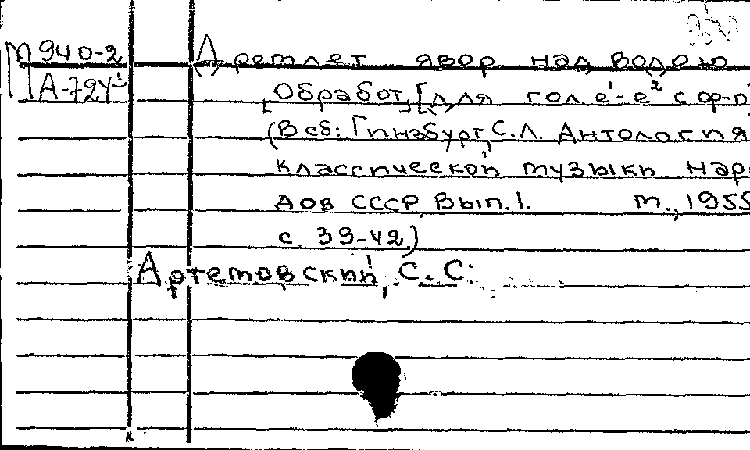 М 940-2
А-724
Дремлет явор над водою
[Обработ.] [для гол. е¹-е² с ф-п]
(В сб: Гинзбург, С.Л. Антология
классической музыки наро
дов СССР. Вып. 1. М., 1955
с. 39-42)
Артемовский, С. С.